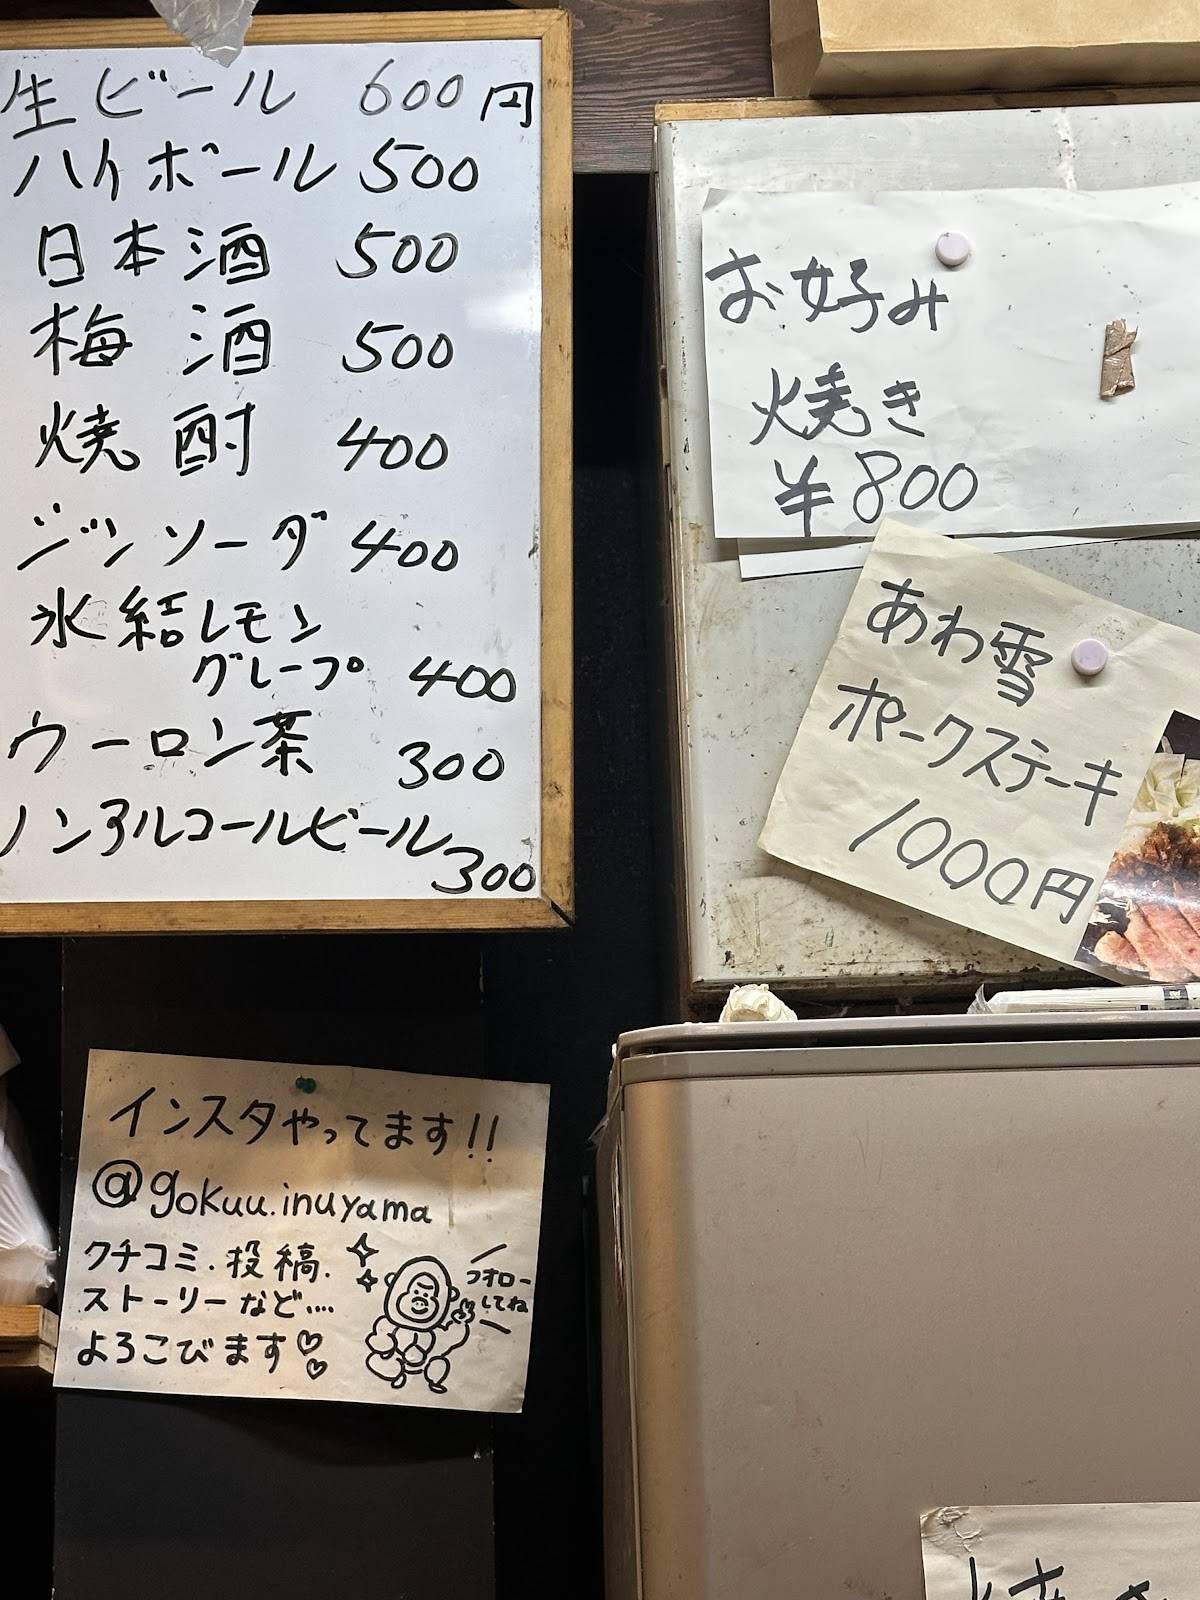 生ビール 600円
ハイボール 500
日本酒 500
梅酒 500
焼酎 400
ジンソーダ 400
氷結レモン
グレープ 400
ウーロン茶 300
ノンアルコールビール
300
お好み
焼き
¥800
あわ雪
ポークステーキ
1000円
インスタやってます!!
@gokuu.inuyama
クチコミ.投稿.
ストーリーなど....
よろこびます♡♡
フォロー
してね